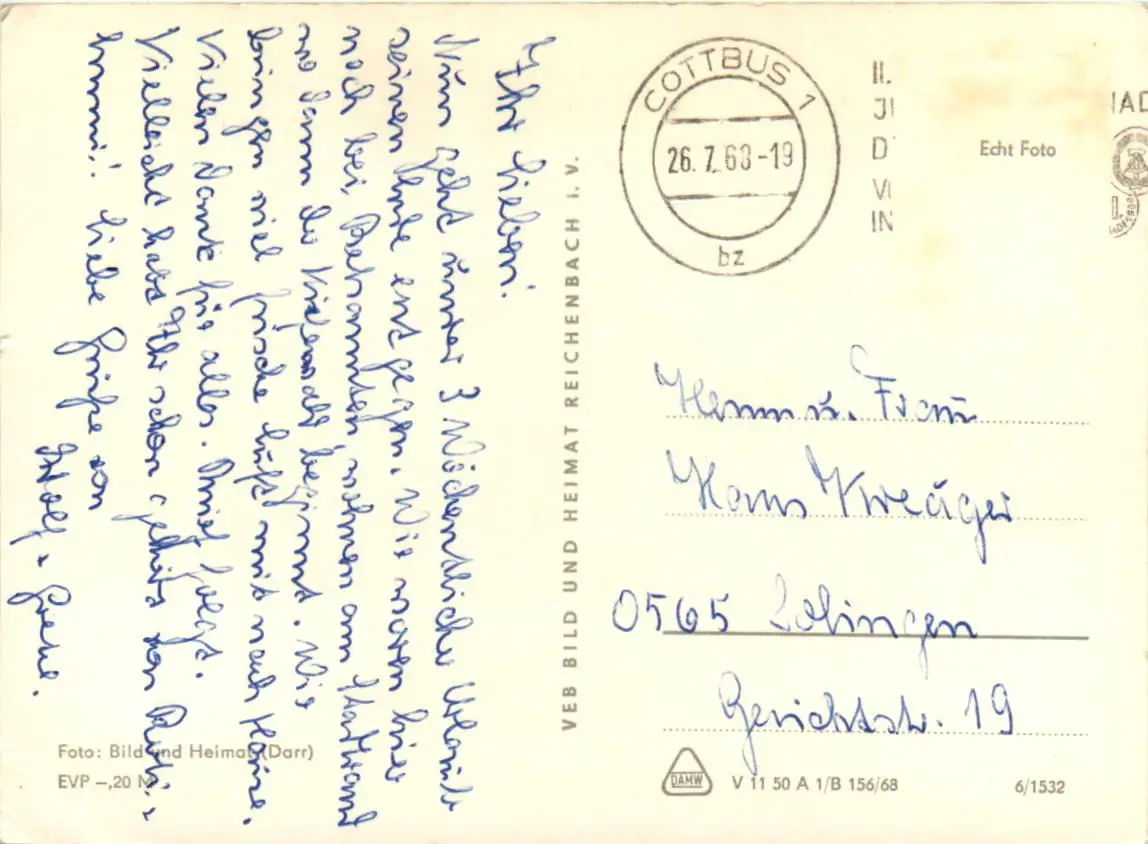 Ihr Lieben!
Nun geht unser 3 wöchentlicher Urlaub
seinem Ende entgegen. Wir waren hier
noch bei Bekannten, nahmen am Stadtrand
wo dann der Kiefernwald beginnt. Wir
bringen viel frische Luft mit nach Hause.
Vielen Dank für alles. Brief folgt.
Vielleicht habt Ihr schon gehört von
Liebe Grüße von
COTTBUS 1
26.7.68-19
bz
II.
D
IN
Echt Foto
VEB BILD UND HEIMAT REICHENBACH i. V.
Herrn u. Frau
Hans
0565 Solingen
Gerichtstr. 19
Foto: Bild und Heimat (Darr)
EVP –,20 M
DAMW
V 11 50 A 1/B 156/68
6/1532